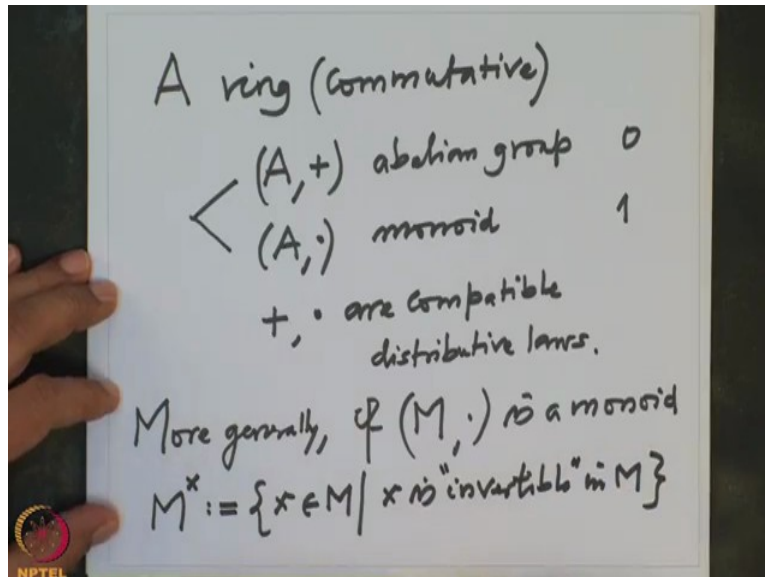 A ring (commutative)
(A, +) abelian group 0
(A, ·) monoid 1
+, · are compatible
distributive laws.
More generally, if (M, ·) is a monoid
M^× := {x ∈ M | x is "invertible" in M}
NPTEL